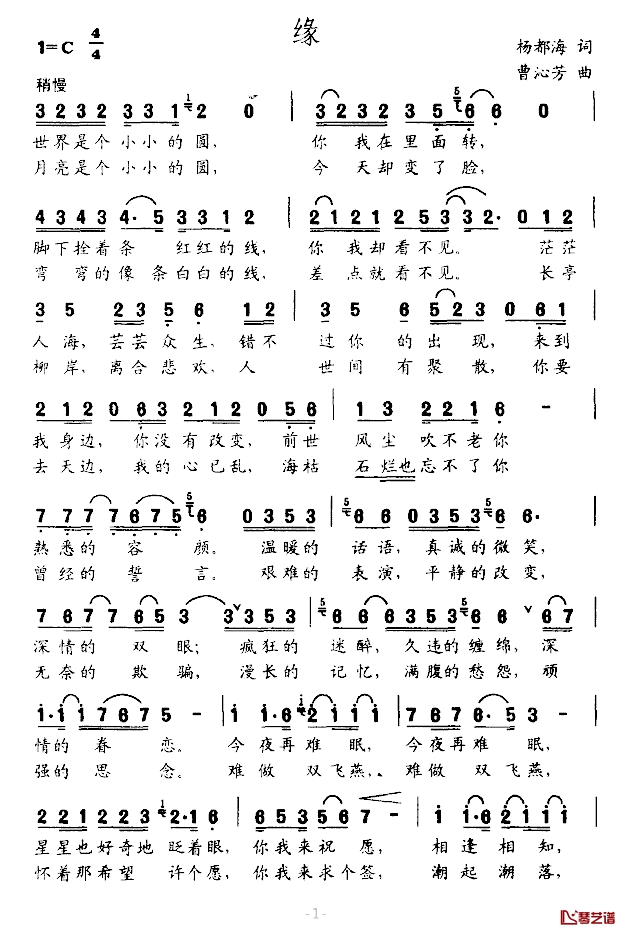 缘
1=C 4/4
杨都海 词
曹沁芳 曲
稍慢
3 2 3 2 3 3 1 1 2 0 | 3 2 3 2 3 5 5 6 6 0 |
世界是个小小的圆, 你 我在里面转,
月亮是个小小的圆, 今 天却变了脸,
4 3 4 3 4· 5 3 3 1 2 | 2 1 2 1 2 5 3 3 3 2· 2 1 |
脚下拴着条 红红的线, 你 我却看不见。 茫茫
弯 弯的像条白白的线, 差 点就看不见。 长亭
3 5 2 3 5 6 0 2 3 | 3 5 6 5 2 3 0 6 1 |
人海,芸芸众生,错不 过你 的 出 现, 来到
柳岸,离合悲欢,人 世间 有 聚 散,你要
2 1 2 0 6 3 2 2 0 5 6 | 1 3 2 2 1 6 - |
我身边, 你没有改变, 前世 风尘 吹不老你
去天边, 我的心已乱,海枯 石烂也忘不了你
7 7 7 7 6 7 5 5 6 0 3 5 3 | 5 6 6 0 3 5 3 5 6·
熟悉的 容 颜。 温暖的 话语,真诚的微笑,
曾经的 誓 言。 艰难的 表演,平静的改变,
7 6 7 7 6 5 3 3 3 5 3 | 5 6 6 6 3 5 3 6 6 · 6 7 |
深情的 双 眼; 疯狂的 迷醉,久违的缠绵,深
无奈的 欺 骗,漫长的 记忆,满腹的愁怨,顽
i· i i 7 6 7 5 - | i i· 6 2 i i i | 7 6 7 6 6· 5 6 |
情的 眷 恋。 今夜再难眠, 今夜再难 眠,
强的 思 念。 难做 双飞燕, 难做 双飞燕,
2 2 1 2 2 3 1 2· 1 6 | 6 5 3 5 6 7 - | i i· 6 i i· |
星星也好奇地 眨着眼,你我来祝 愿, 相逢相知,
怀着那希望 许个愿,你我来求个签, 潮起潮落,
-1-
琴艺谱